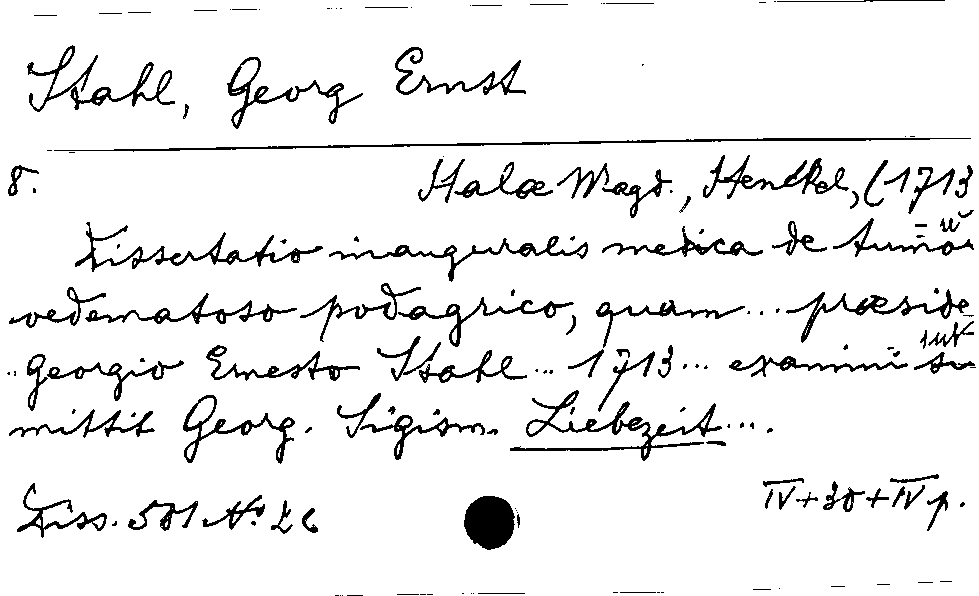 Stahl, Georg Ernst
8.
Halae Magd., Henckel, (1713
Dissertatio inauguralis medica de tumo
oedematoso podagrico, quam ... praeside
.. Georgio Ernesto Stahl ... 1713 ... examini su
mittit Georg. Sigism. Liebezeit ....
Diss. 501 No. 26
IV+30+IV p.